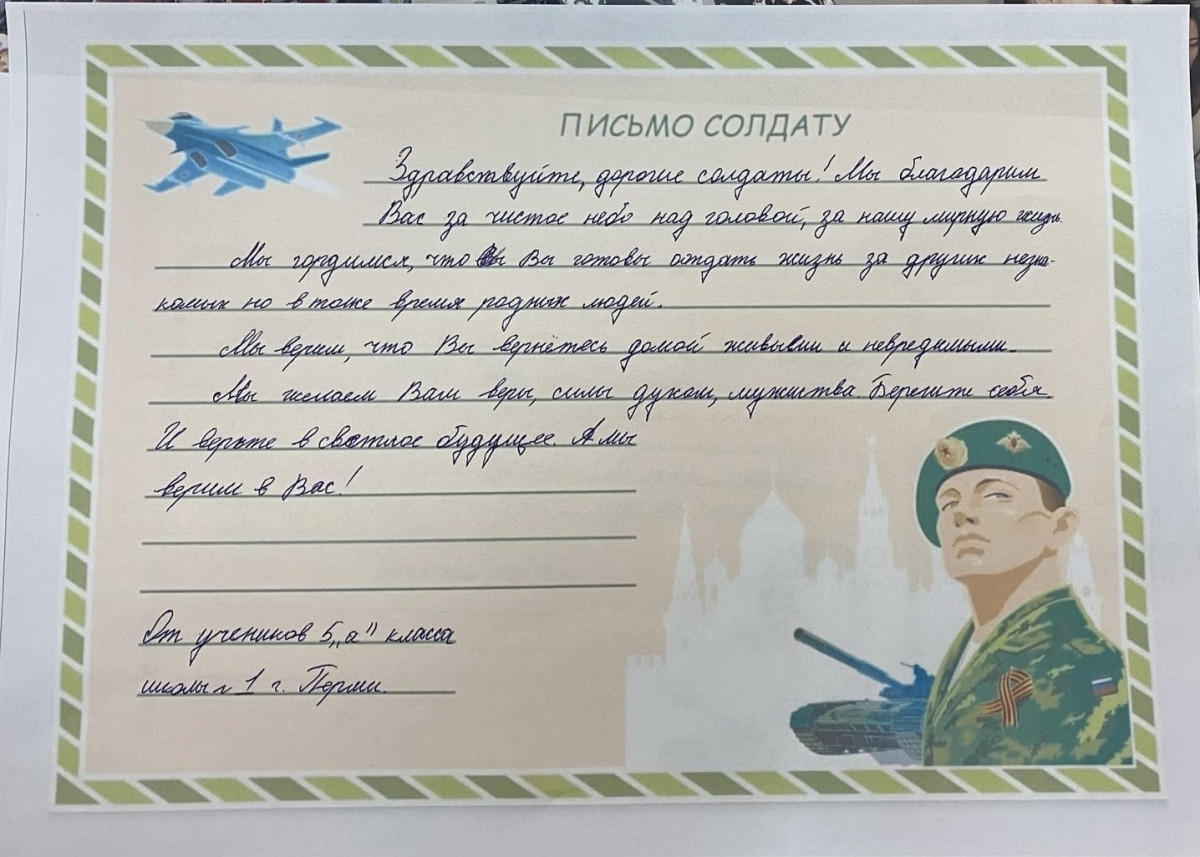 ПИСЬМО СОЛДАТУ
Здравствуйте, дорогие солдаты! Мы благодарим
Вас за чистое небо над головой, за нашу мирную жизнь.
Мы гордимся, что Вы готовы отдать жизнь за других незна-
комых но в тоже время родных людей.
Мы верим, что Вы вернётесь домой живыми и невредимыми.
Мы желаем Вам веры, силы духом, мужества. Берегите себя
И верьте в светлое будущее. А мы
верим в Вас!
От учеников 5 „а" класса
школы № 1 г. Перми.